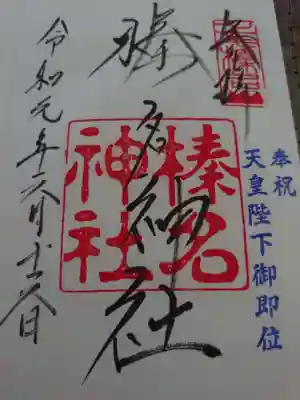 榛名神社
榛名
神社
奉祝
天皇陛下御即位
令和元年六月十六日